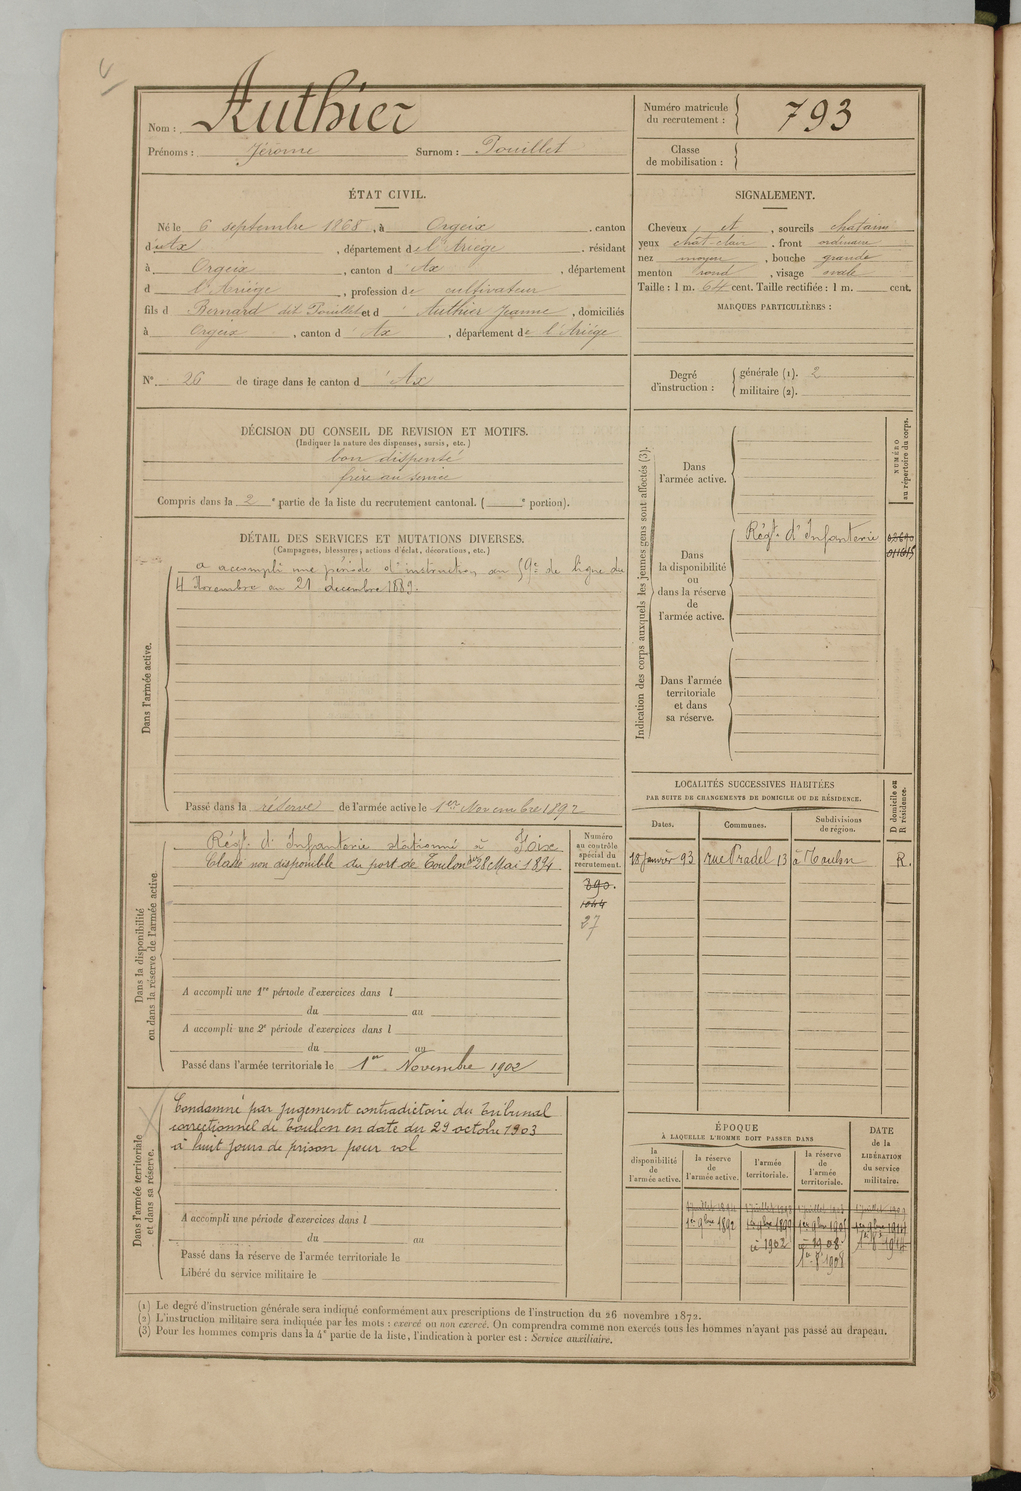 Nom : Authier
Prénoms : Jérome Surnom : Pouillet
Numéro matricule
du recrutement : 793
Classe
de mobilisation :
ÉTAT CIVIL.
Né le 6 septembre 1868, à Orgeix, canton
d'Ax, département de l'Ariége, résidant
à Orgeix, canton d'Ax, département
d l'Ariége, profession de cultivateur
fils d Bernard dit Pouillet et d Authier Jeanne, domiciliés
à Orgeix, canton d'Ax, département de l'Ariége
N° 26 de tirage dans le canton d'Ax
SIGNALEMENT.
Cheveux et, sourcils chatains
yeux chat-clair, front ordinaire
nez moyen, bouche grande
menton rond, visage ovale
Taille : 1 m. 64 cent. Taille rectifiée : 1 m. cent.
MARQUES PARTICULIÈRES :
Degré
d'instruction :
générale (1). 2
militaire (2).
DÉCISION DU CONSEIL DE REVISION ET MOTIFS.
(Indiquer la nature des dispenses, sursis, etc.)
bon dispensé
frère au service
Compris dans la 2e partie de la liste du recrutement cantonal. ( e portion).
DÉTAIL DES SERVICES ET MUTATIONS DIVERSES.
(Campagnes, blessures, actions d'éclat, décorations, etc.)
Dans l'armée active.
a accompli une période d'instruction au 59e de ligne du
4 Novembre au 21 décembre 1889.
Passé dans la réserve de l'armée active le 1er Novembre 1892
Indication des corps auxquels les jeunes gens sont affectés (3).
NUMÉRO
au répertoire du corps.
Dans
l'armée active.
Dans
la disponibilité
ou
dans la réserve
de
l'armée active.
Régt. d'Infanterie
Dans l'armée
territoriale
et dans
sa réserve.
Dans la disponibilité
ou dans la réserve de l'armée active.
Régt. d'Infanterie stationné à Foix
Classé non disponible du port de Toulon 28 Mai 1894
Numéro
au contrôle
spécial du
recrutement.
390.
1044
27
A accompli une 1re période d'exercices dans l
du au
A accompli une 2e période d'exercices dans l
du au
Passé dans l'armée territoriale le 1er Novembre 1902
LOCALITÉS SUCCESSIVES HABITÉES
PAR SUITE DE CHANGEMENTS DE DOMICILE OU DE RÉSIDENCE.
D domicile ou
R résidence.
Dates. Communes. Subdivisions
de région.
18 janvier 93 rue Pradel 13 à Toulon R.
Dans l'armée territoriale
et dans sa réserve.
Condamné par jugement contradictoire du tribunal
correctionnel de Toulon en date du 29 octobre 1903
à huit jours de prison pour vol
A accompli une période d'exercices dans l
du au
Passé dans la réserve de l'armée territoriale le
Libéré du service militaire le
ÉPOQUE
À LAQUELLE L'HOMME DOIT PASSER DANS
DATE
de la
LIBÉRATION
du service
militaire.
la
disponibilité
de
l'armée active.
la réserve
de
l'armée active.
l'armée
territoriale.
la réserve
de
l'armée
territoriale.
1er 9bre 1892 1er 9bre 1899
1902 1908
1908
(1) Le degré d'instruction générale sera indiqué conformément aux prescriptions de l'instruction du 26 novembre 1872.
(2) L'instruction militaire sera indiquée par les mots : exercé ou non exercé. On comprendra comme non exercés tous les hommes n'ayant pas passé au drapeau.
(3) Pour les hommes compris dans la 4e partie de la liste, l'indication à porter est : Service auxiliaire.